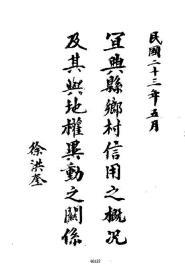 民國二十三年五月
宜興縣鄉村信用之概况
及其與地權異動之關係
徐洪奎